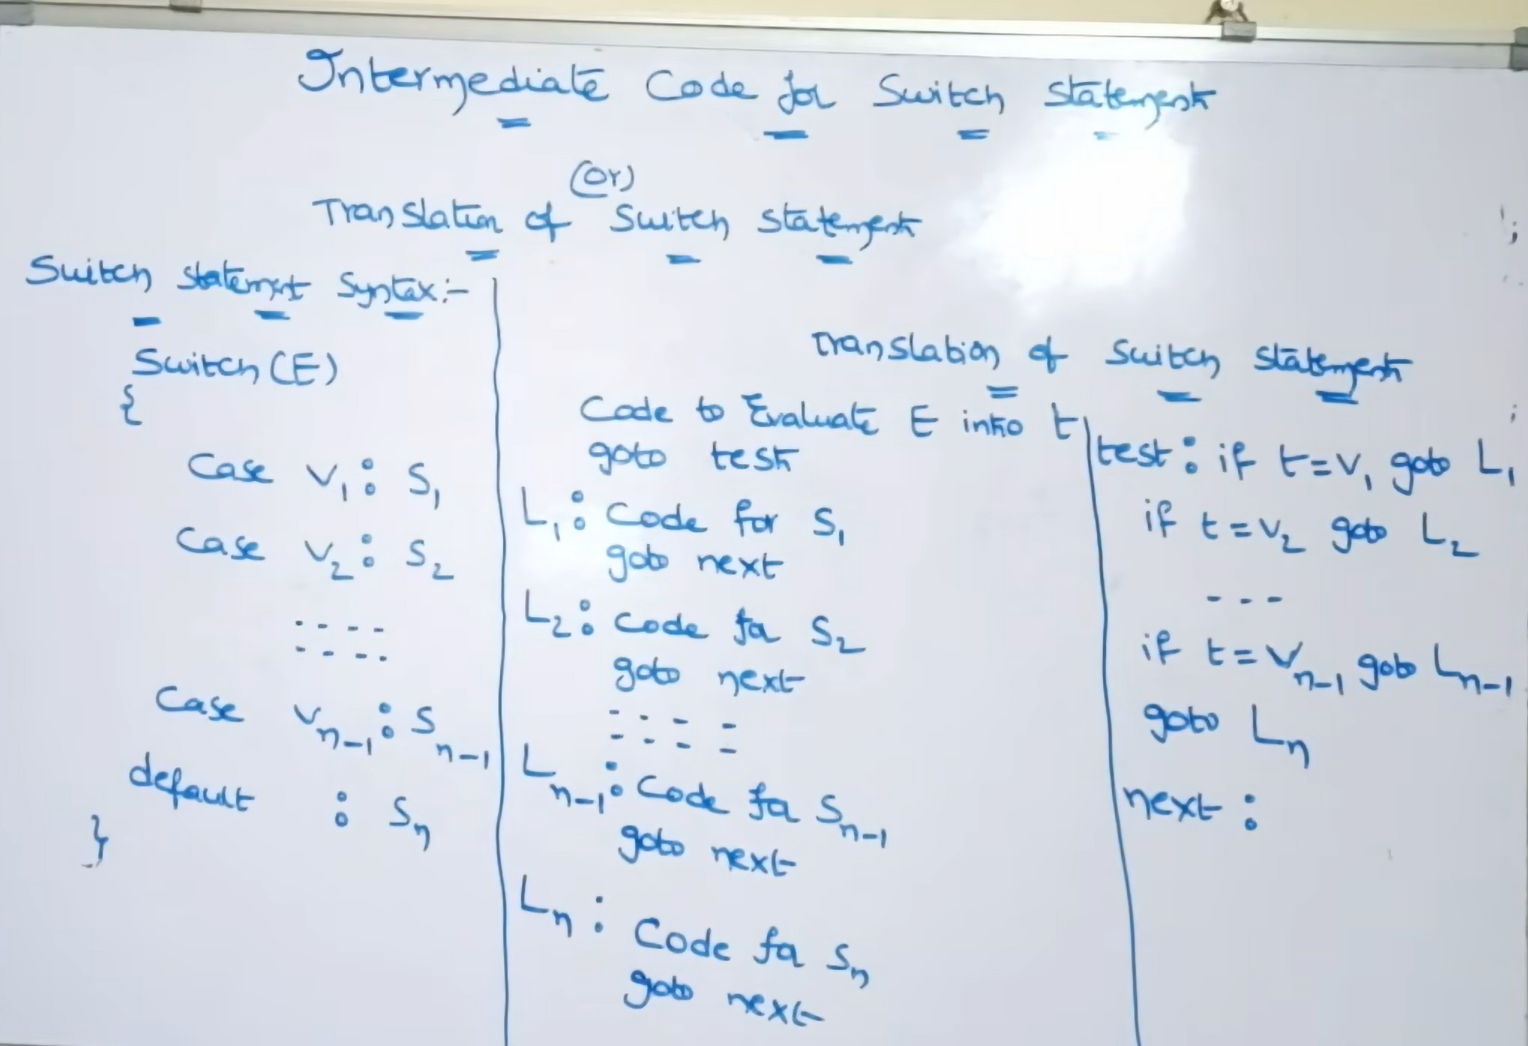 Intermediate Code for Switch Statement
(or)
Translation of Switch Statement
Switch Statement Syntax:-
Switch (E)
{
Case V1 : S1
Case V2 : S2
- - - -
- - - -
Case Vn-1 : Sn-1
default : Sn
}
Translation of Switch Statement
Code to Evaluate E into t
goto test
L1 : Code for S1
goto next
L2 : Code for S2
goto next
- - - -
- - - -
Ln-1 : Code for Sn-1
goto next
Ln : Code for Sn
goto next
test : if t=V1 goto L1
if t=V2 goto L2
- - -
if t=Vn-1 goto Ln-1
goto Ln
next :